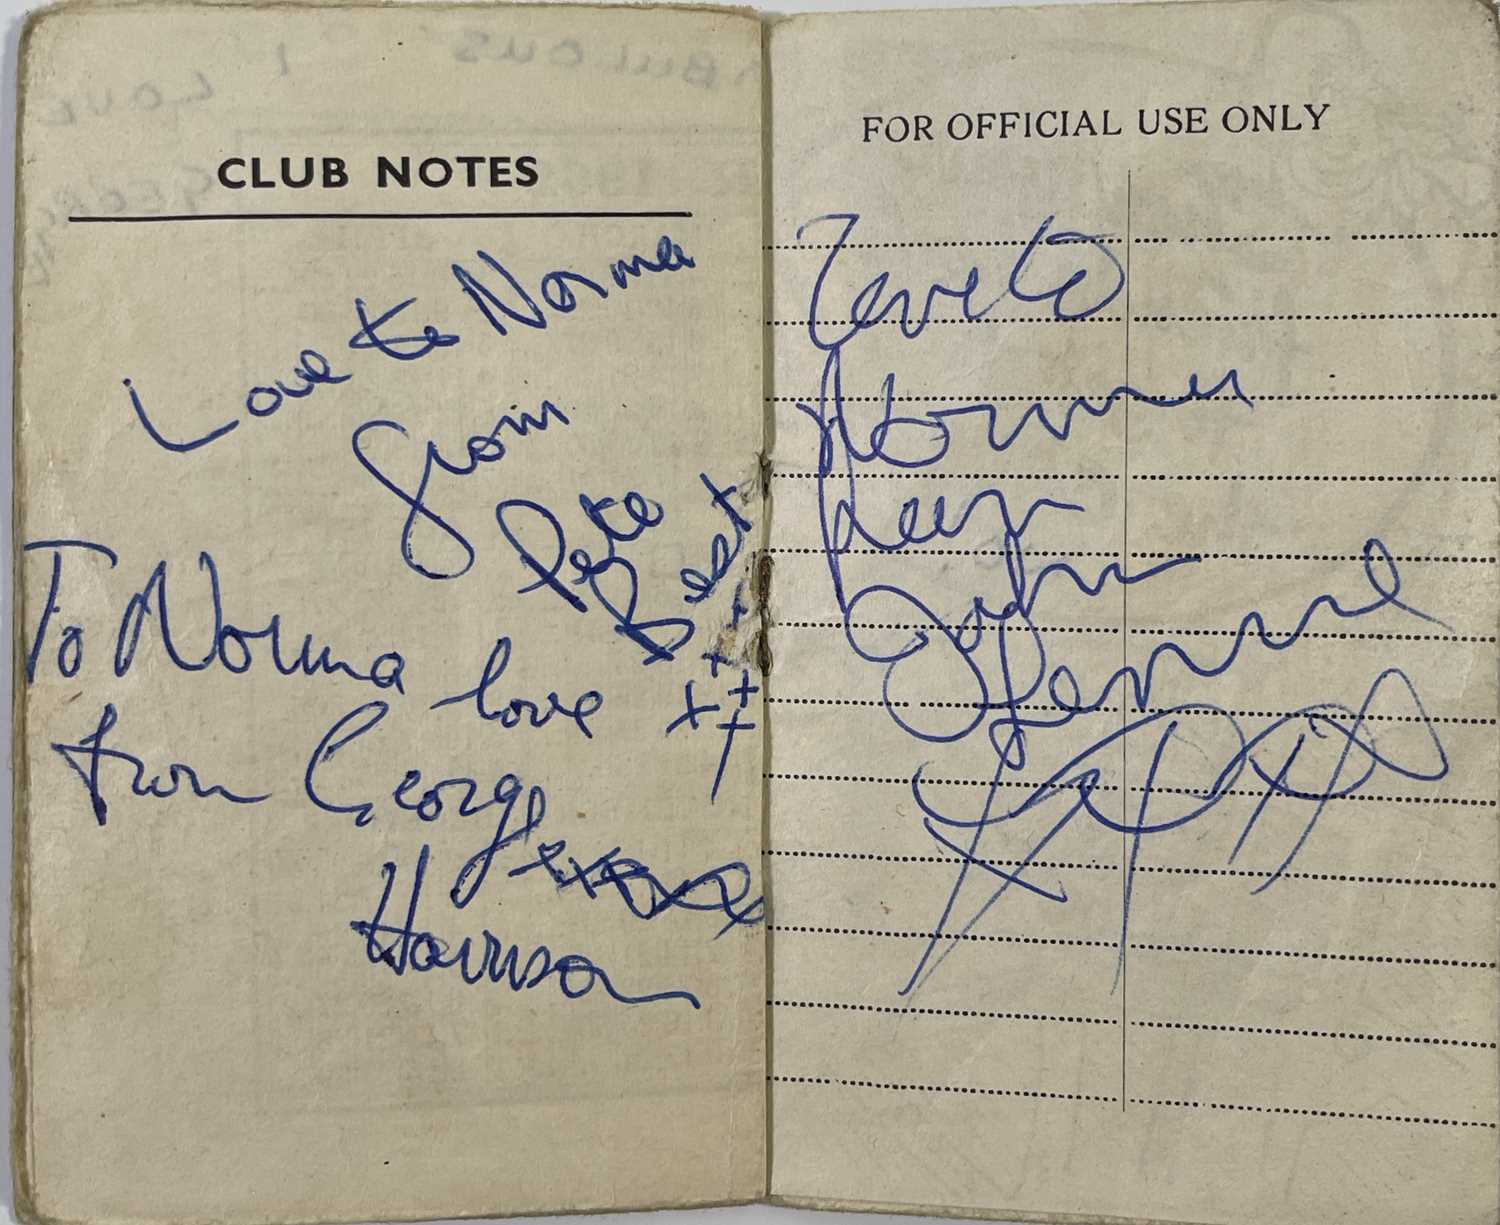 CLUB NOTES
Love to Norma
from
Pete
Best
To Norma love
from George
Harrison
FOR OFFICIAL USE ONLY
Love to
Norma
from
John
Lennon